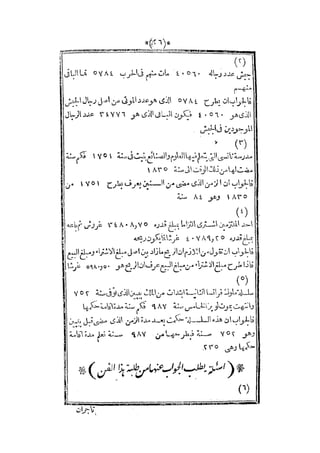 *(٢٦)*
(٢)
جيش عدد رجاله ٤٠٥٦٠ مات منهم فى الحرب ٥٧٨٤ فما الباقى
منهم
فالجواب ان يطرح ٥٧٨٤ الذى هو عدد الموتى من أصل رجال الجيش
الذى هو ٤٠٥٦٠ فيكون الباقى الذى هو ٣٤٧٧٦ عدد الرجال
الموجودين فى الجيش
(٣)
مدرسة التى يتعلم فيها العلوم والصنائع بنيت فى سنة ١٧٥١ فكم سنة
مضت لها من ذلك الوقت الى سنة ١٨٣٥
فالجواب ان الزمن الذى مضى من السنين يعرف بطرح ١٧٥١ من
١٨٣٥ وهو ٨٤ سنة
(٤)
احد الملتزمين اشترى التزاما بمبلغ قدره ٣٤٨٠٨,٧٥ غروش ثم باعه
بمبلغ قدره ٤٠٧٨٩,٢٥ غرشا فما يكون ربحه
فالجواب ان نقول من اللازم ان الربح ما زاد بين اصل مبلغ الاشتراء ومبلغ البيع
فاذا طرح مبلغ الاشتراء من مبلغ البيع عرف ان الربح هو ٥٩٨٠,٥٠ غرشا
(٥)
سلسلة ملوك فرانسا الثانية ابتدأت من الملك الذى توفى سنة ٧٥٢
وانتهت بموت لويز الخامس سنة ٩٨٧ فكم سنة مدة اقامة حكمها
فالجواب ان هذه السلسلة حكمت بعد مدة الزمن الذى مضى قبل
وهو ٧٥٢ سنة فبطرحها من ٩٨٧ سنة تعلم مدة اقامة
حكمها وهى ٢٣٥
*(اسئلة يطلب الجواب عنها من طلبة هذا الفن)*
(٦)
تاجران